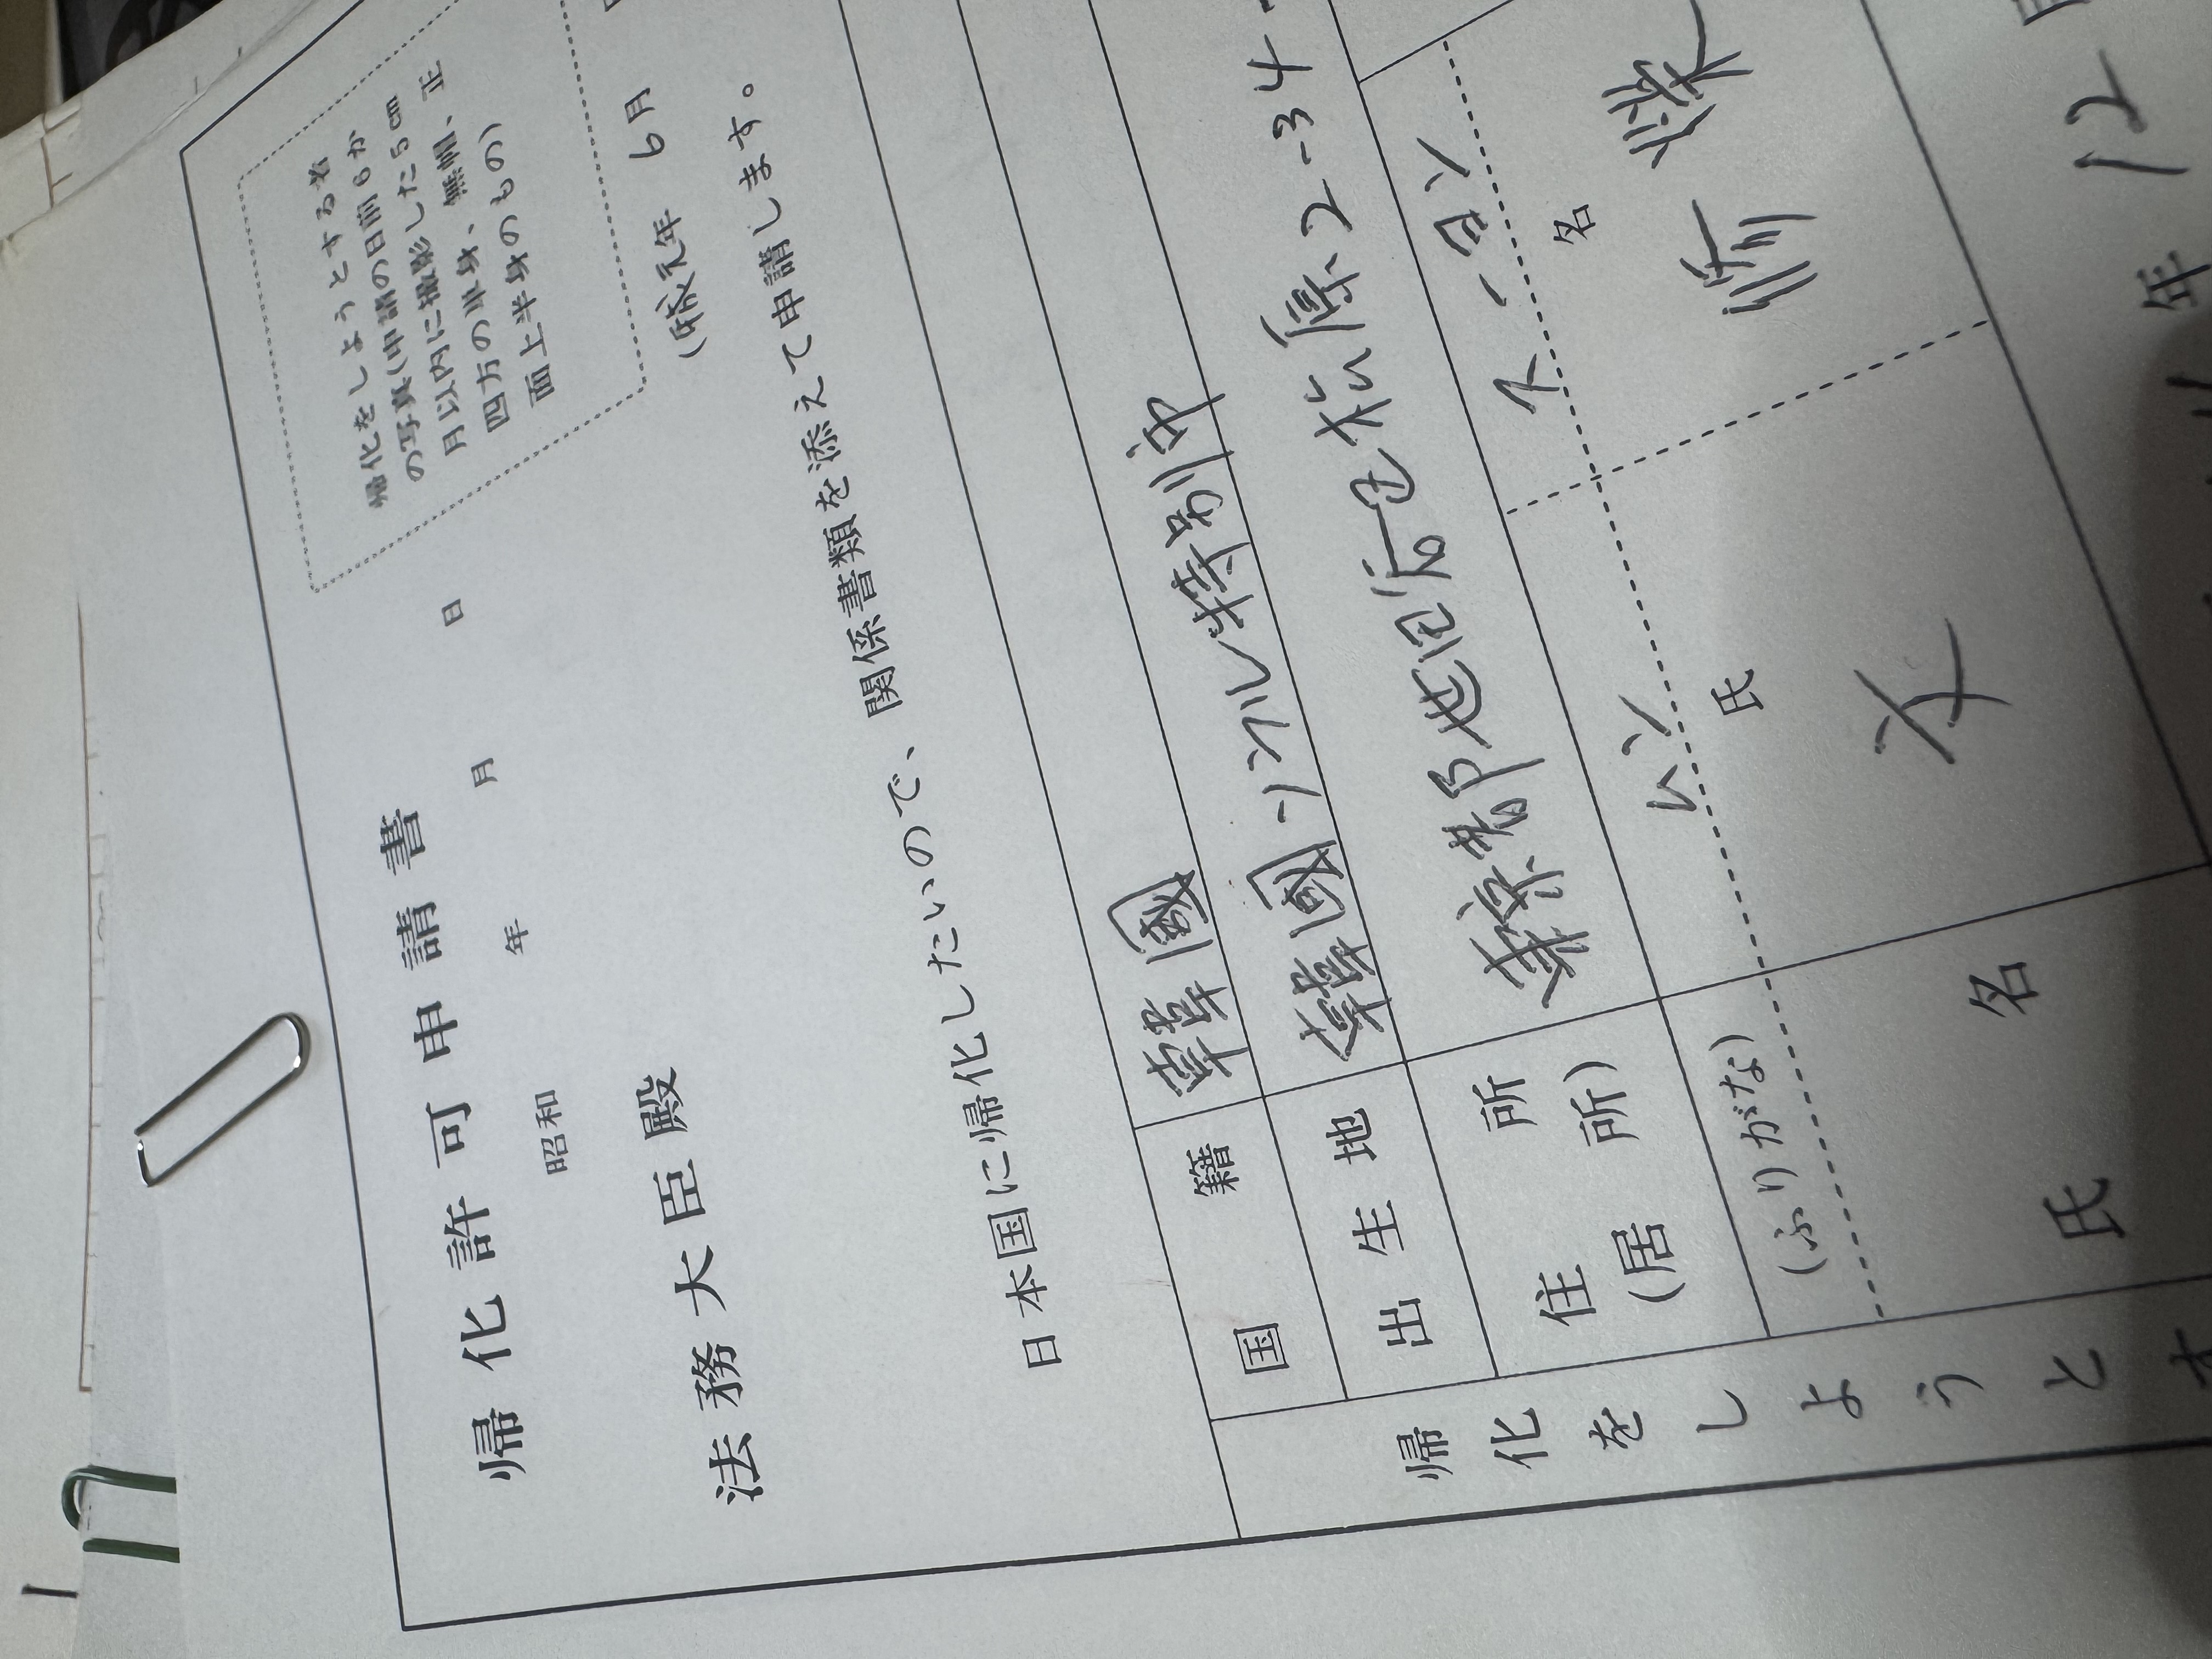 帰化許可申請書
昭和 年 月 日
帰化をしようとする者
の写真(申請の日前6か
月以内に撮影した5cm
四方の単身、無帽、正
面上半身のもの)
(平成元年 6月
法務大臣殿
日本国に帰化したいので、関係書類を添えて申請します。
国籍 韓國
出生地 韓國ソウル特別市
住所(居所) 東京都世田谷区桜 2-34-
(ふりがな) ムン
氏名 氏 文 名
12
年
帰化をしようと